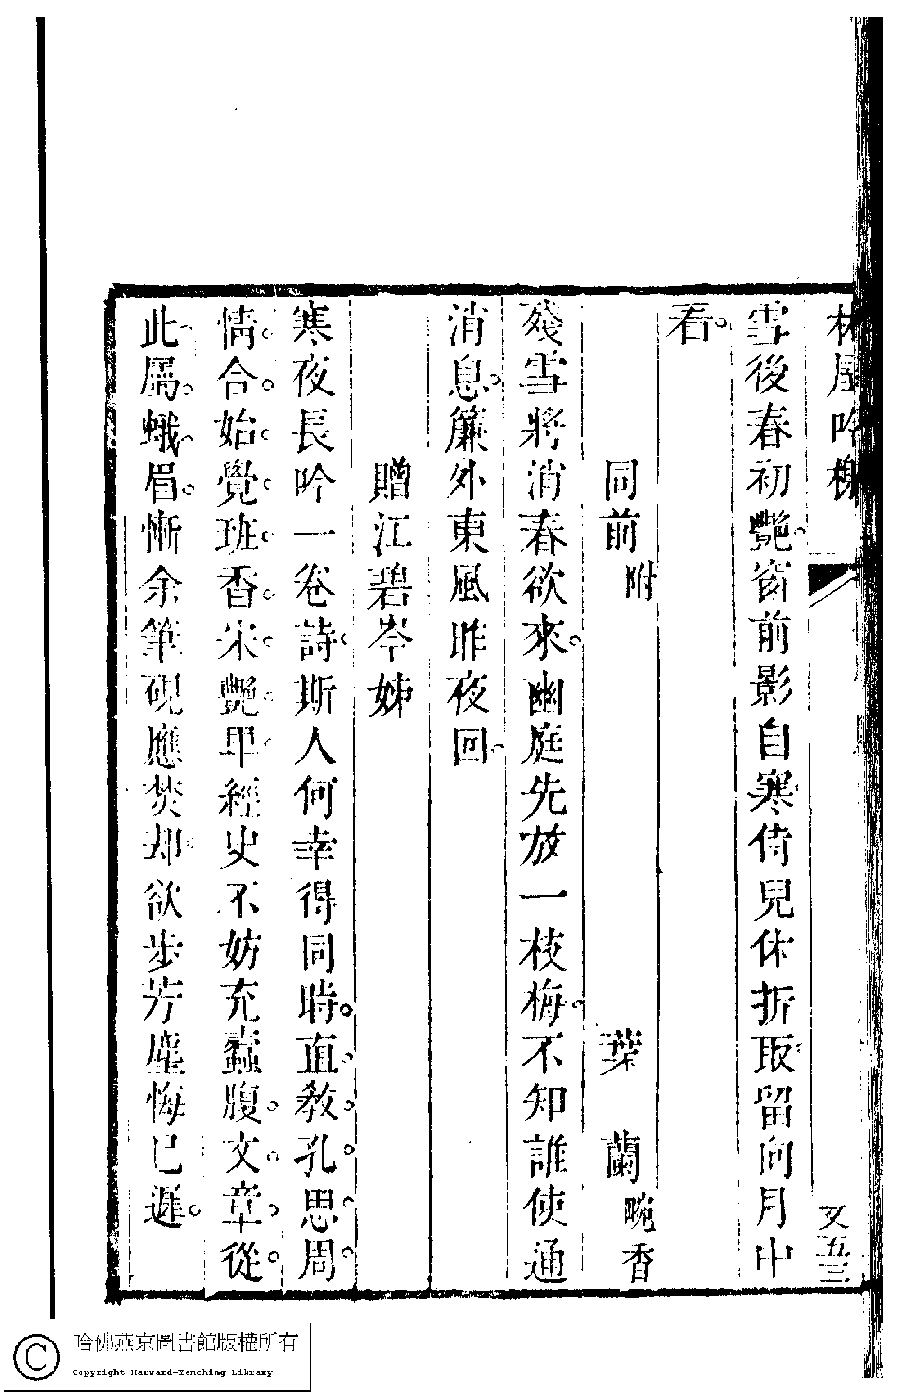 林屋吟榭
又五三
雪後春初艷窗前影自寒侍兒休折取留向月中
看
同前附 葉蘭畹香
殘雪將消春欲來幽庭先放一枝梅不知誰使通
消息簾外東風昨夜回
贈江碧岑姊
寒夜長吟一卷詩斯人何幸得同時直教孔思周
情合始覺班香宋艷卑經史不妨充蠹腹文章從
此屬蛾眉慚余筆硯應焚却欲步芳塵悔已遲
哈佛燕京圖書館版權所有
Copyright Harvard-Yenching Library